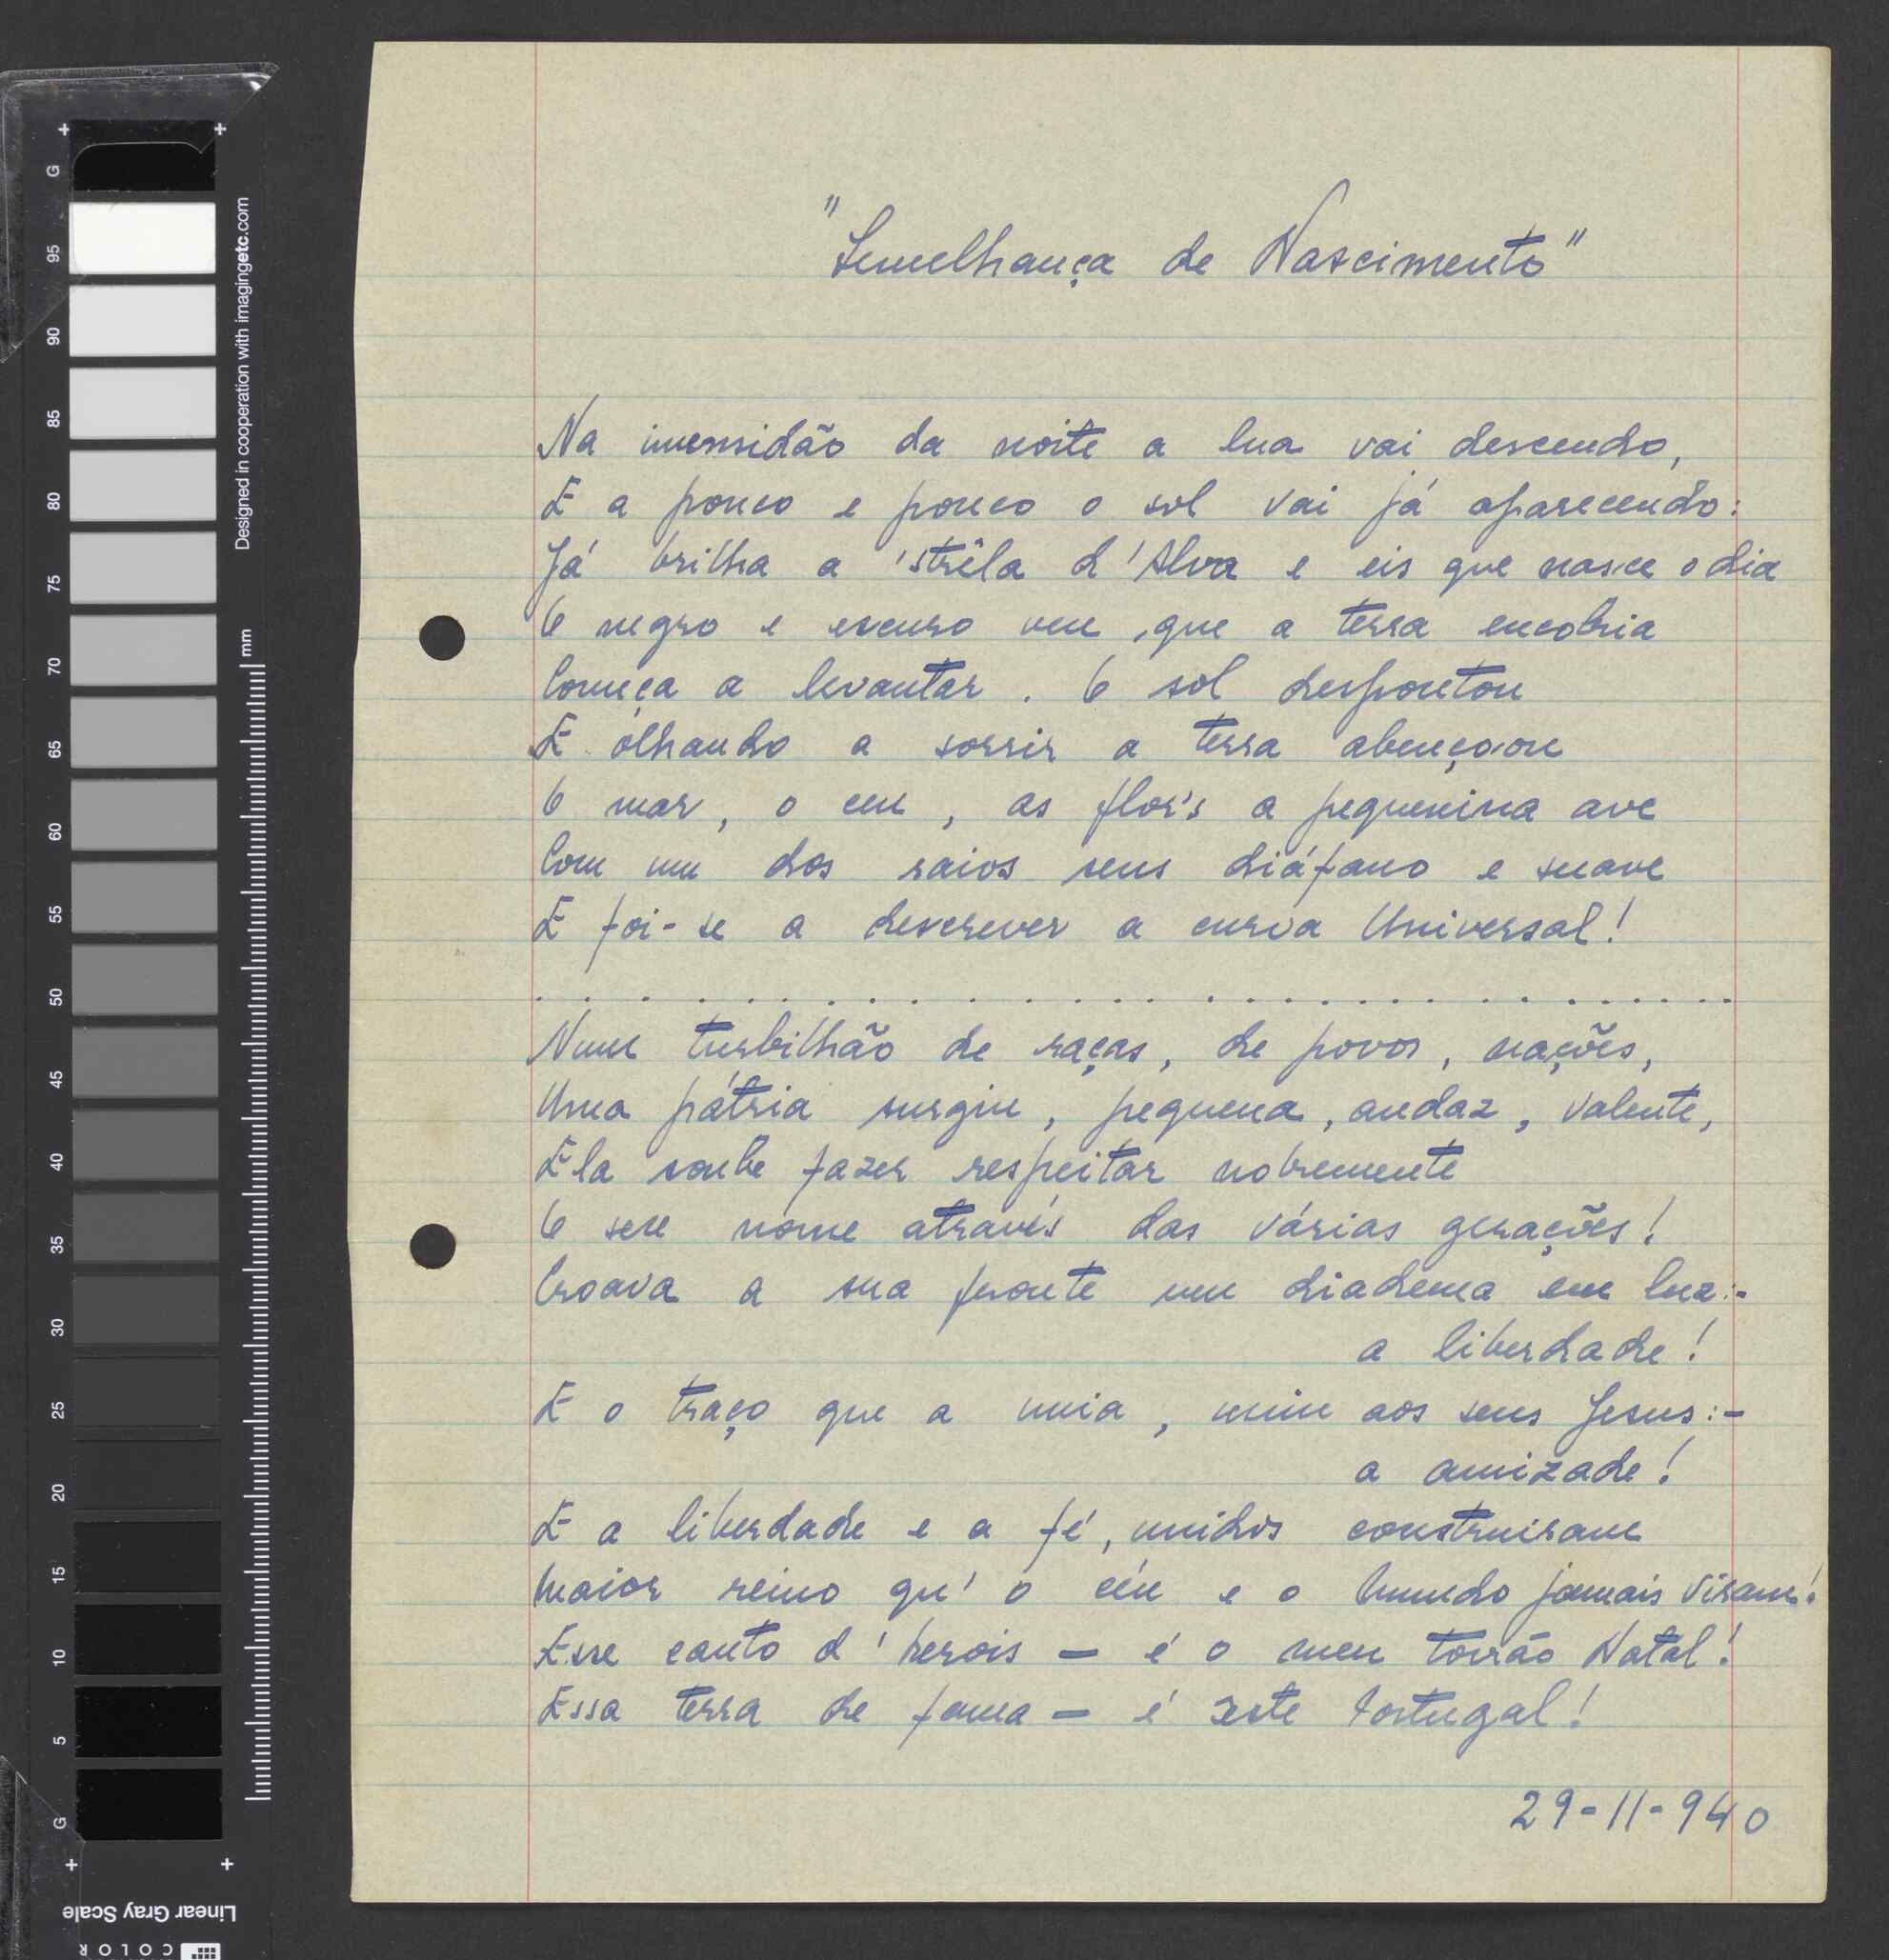 "Semelhança de Nascimento"
Na imensidão da noite a lua vai descendo,
E a pouco e pouco o sol vai já aparecendo:
Já brilha a 'strêla d'Alva e eis que nasce o dia
O negro e escuro veu, que a terra encobria
Começa a levantar. O sol despontou
E olhando a sorrir a terra abençoou
O mar, o ceu, as flor's a pequenina ave
Com um dos raios seus diáfano e suave
E foi-se a descrever a curva Universal!
. . . . . . . . . . . . . . . . . . . . . . . . . . .
Num turbilhão de raças, de povos, nações,
Uma pátria surgiu, pequena, audaz, valente,
Ela soube fazer respeitar nobremente
O seu nome através das várias gerações!
Croava a sua fronte um diadema em luz:-
a liberdade!
E o traço que a unia, uniu aos seus Jesus:-
a amizade!
E a liberdade e a fé, unidos construiram
Maior reino qu' o céu e o Mundo jamais viram!
Esse canto d'herois - é o meu torrão Natal!
Essa terra de fama - é este Portugal!
29-11-940
Designed in cooperation with imagingetc.com
mm
G
95
90
85
80
75
70
65
60
55
50
45
40
35
30
25
20
15
10
5
G
Linear Gray Scale
COLOR